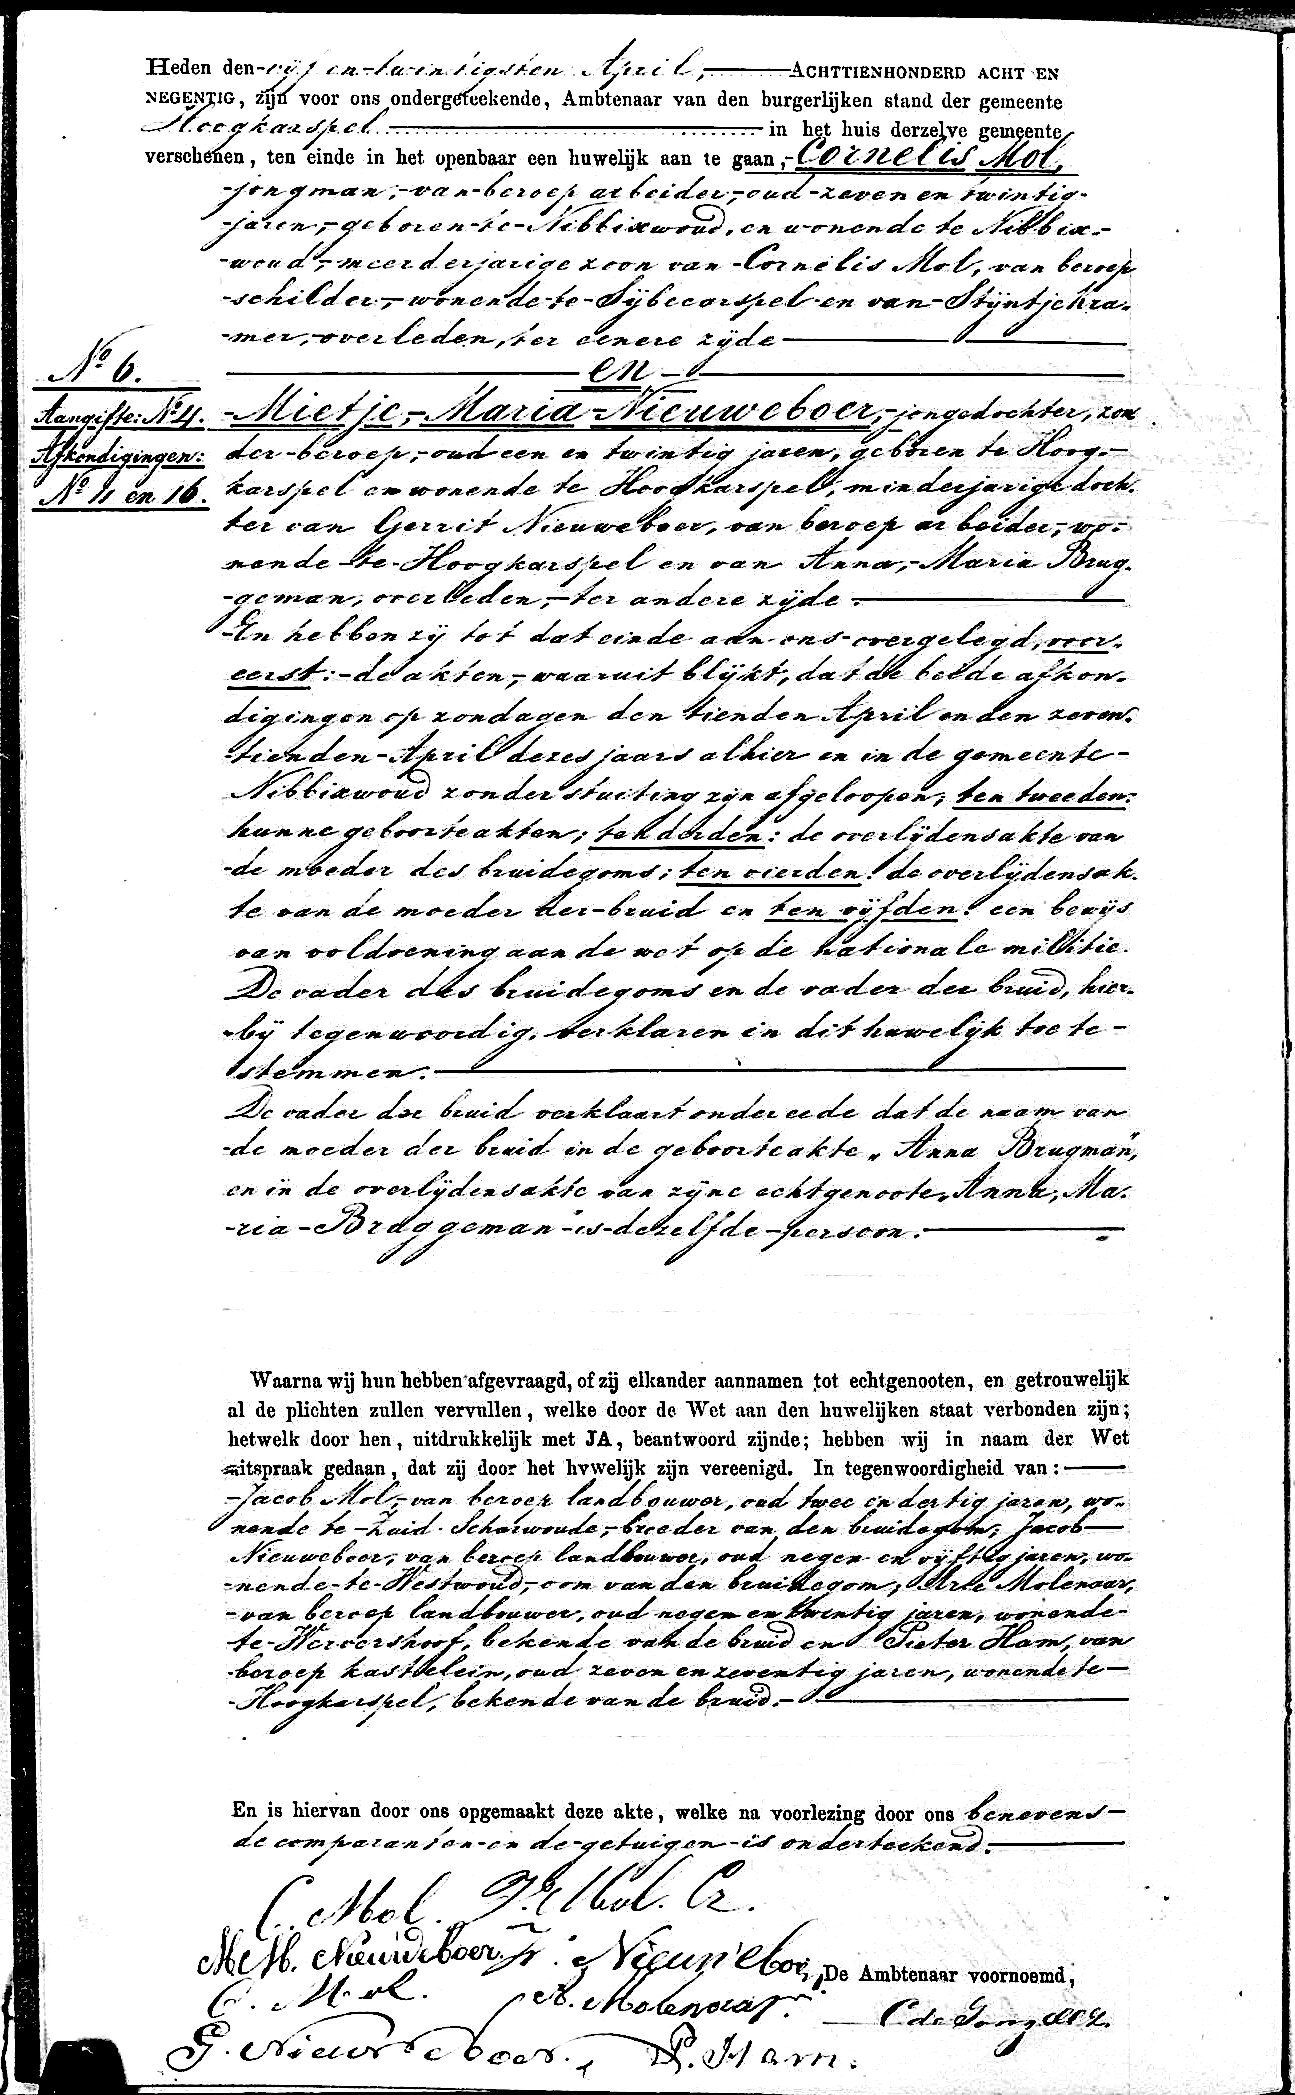 Heden den vijf en twintigsten April, ACHTTIENHONDERD ACHT EN
NEGENTIG, zijn voor ons ondergeteekende, Ambtenaar van den burgerlijken stand der gemeente
Hoogkarspel in het huis derzelve gemeente
verschenen, ten einde in het openbaar een huwelijk aan te gaan, Cornelis Mol,
jongman, van beroep arbeider, oud zeven en twintig
jaren, geboren te Nibbixwoud, en wonende te Nibbix-
woud, meerderjarige zoon van Cornelis Mol, van beroep
schilder, wonende te Sijbecarspel en van Stijntje Kra-
mer, overleden, ter eenere zijde
en
No 6.
Aangifte: No 4.
Afkondigingen:
No 11 en 16.
Mietje, Maria Nieuweboer, jongedochter, zon
der beroep, oud een en twintig jaren, geboren te Hoog-
karspel en wonende te Hoogkarspel, minderjarige doch-
ter van Gerrit Nieuweboer, van beroep arbeider, wo-
nende te Hoogkarspel en van Anna, Maria Brug-
geman, overleden, ter andere zijde.
En hebben zij tot dat einde aan ons overgelegd, voor-
eerst: de akten, waaruit blijkt, dat de beide afkon-
digingen op zondagen den tienden April en den zeven-
tienden April dezes jaars alhier en in de gemeente
Nibbixwoud zonder stuiting zijn afgeloopen; ten tweeden:
hunne geboorteakten; ten derden: de overlijdensakte van
de moeder des bruidegoms; ten vierden: de overlijdensak-
te van de moeder der bruid en ten vijfden: een bewijs
van voldoening aan de wet op de nationale militie.
De vader des bruidegoms en de vader der bruid, hier-
bij tegenwoordig, verklaren in dit huwelijk toe te
stemmen.
De vader der bruid verklaart onder eede dat de naam van
de moeder der bruid in de geboorteakte „Anna Brugman",
en in de overlijdensakte van zijne echtgenoote „Anna, Ma-
ria Bruggeman" is dezelfde persoon.
Waarna wij hun hebben afgevraagd, of zij elkander aannamen tot echtgenooten, en getrouwelijk
al de plichten zullen vervullen, welke door de Wet aan den huwelijken staat verbonden zijn;
hetwelk door hen, uitdrukkelijk met JA, beantwoord zijnde; hebben wij in naam der Wet
uitspraak gedaan, dat zij door het huwelijk zijn vereenigd. In tegenwoordigheid van:
Jacob Mol, van beroep landbouwer, oud twee en dertig jaren, wo-
nende te Zuid-Scharwoude, broeder van den bruidegom; Jacob
Nieuweboer, van beroep landbouwer, oud negen en vijftig jaren, wo-
nende te Westwoud, oom van den bruidegom; Arie Molenaar,
van beroep landbouwer, oud negen en twintig jaren, wonende
te Wervershoof, bekende van de bruid en Pieter Ham, van
beroep kastelein, oud zeven en zeventig jaren, wonende te
Hoogkarspel, bekende van de bruid.
En is hiervan door ons opgemaakt deze akte, welke na voorlezing door ons benevens
de comparanten en de getuigen is onderteekend.
C. Mol. J. Mol. Cz.
M. M. Nieuweboer. J. Nieuweboer
De Ambtenaar voornoemd,
C. Mol. A. Molenaar
C de Jong
G. Nieuweboer. P. Ham.